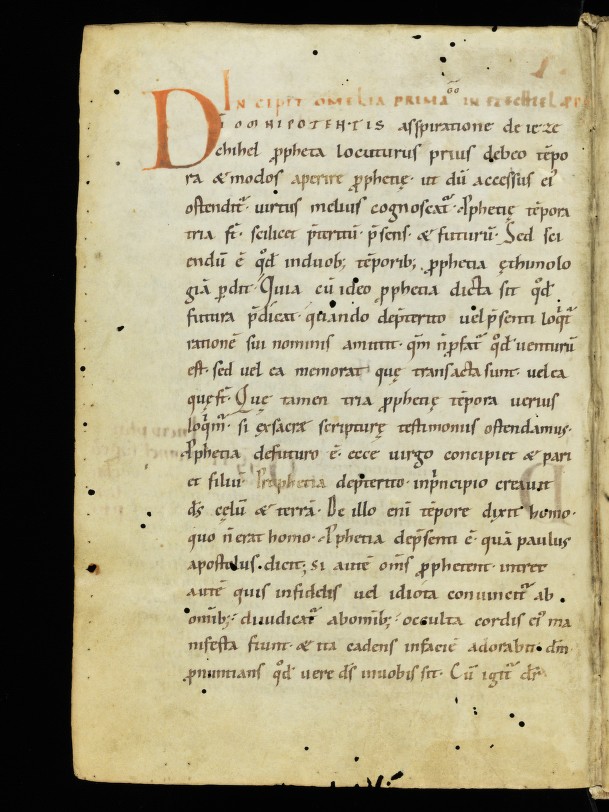 INCIPIT OMELIA PRIMA IN EZECHIEL
DĪ OMNIPOTENTIS asspiratione de ieze
chihel ꝓpheta locuturus prius debeo tēpo
ra & modos aperire ꝓphetię · ut dū accessus eiꝰ
ostendit᷑ · virtus melius cognoscat᷑ · Ꝓphetię tēpora
tria st̄ · scilicet p̄teritū · p̄sens · & futurū · Sed sci
endū ē qd̄ induob; tēporib; ꝓphetia ęthimolo
giā ꝑdit · Quia cū ideo ꝓphetia dicta sit qd̄
futura p̄dicat · quando dep̄terito uel p̄senti loqt᷑
rationē sui nominis amittit · qm̄ n̄ ꝓfat᷑ qd̄ uenturū
est · sed uel ea memorat quę transacta sunt · uel ea
quę st̄ · Quę tamen tria ꝓphetię tēpora uerius
loqm᷑ · si ex sacrę scripturę testimoniis ostendamus ·
Ꝓphetia defuturo ē · ecce uirgo concipiet & pari
et filiū · Prophetia dep̄terito · inp̄ncipio creauit
ds̄ cęlū & terrā · De illo enī tēpore dixit homo ·
quo n̄ erat homo · Ꝓphetia dep̄senti ē · quā paulus
apostolus dicit; si autē om̄s ꝓphetent · intret
autē quis infidelis uel idiota conuincit᷑ ab
omīb; · diiudicat᷑ abomīb; · occulta cordis eiꝰ ma
nifesta fiunt · & ita cadens infaciē adorabit dm̄
ꝓnuntians qd̄ uere ds̄ inuobis sit · Cū igit᷑ dr̄